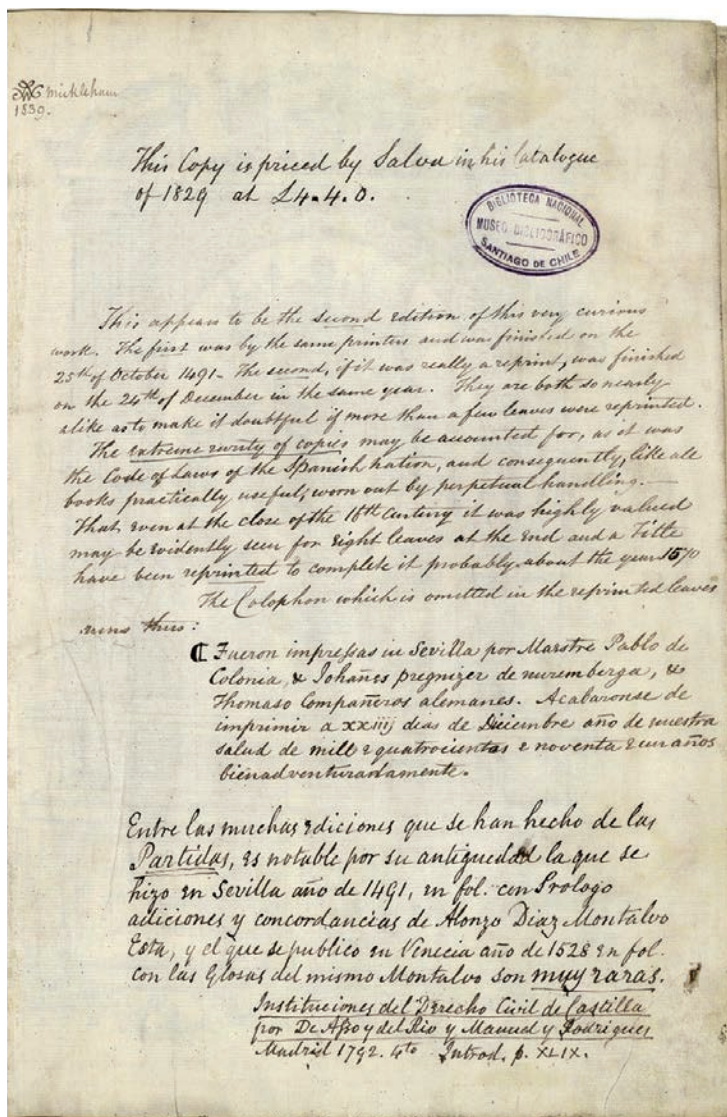 Mickleham
1839.
This Copy is priced by Salva in his Catalogue
of 1829 at £4.4.0.
BIBLIOTECA NACIONAL
MUSEO BIBLIOGRÁFICO
SANTIAGO DE CHILE
This appears to be the second edition of this very curious
work. The first was by the same printers and was finished on the
25th of October 1491 - The second, if it was really a reprint, was finished
on the 24th of December in the same year. They are both so nearly
alike as to make it doubtful if more than a few leaves were reprinted.
The extreme rarity of copies may be accounted for, as it was
the Code of Laws of the Spanish nation, and consequently, like all
books practically useful, worn out by perpetual handling.—
That even at the close of the 16th Century it was highly valued
may be evidently seen for eight leaves at the end and a Title
have been reprinted to complete it probably about the year 1570
The Colophon which is omitted in the reprinted leaves
runs thus:
Fueron impressas in Sevilla por Maestre Pablo de
Colonia, & Johañes pregnizer de nuremberga, &
Thomaso Compañeros alemanes. Acabaronse de
imprimir a xxiiij dias de Diciembre año de nuestra
salud de mill e quatrocientas e noventa e un años
bienadventuradamente.
Entre las muchas ediciones que se han hecho de las
Partidas, es notable por su antiguedad la que se
hizo en Sevilla año de 1491, en fol. con Prologo
adiciones y concordancias de Alonzo Diaz Montalvo
Esta, y el que se publico en Venecia año de 1528 en fol.
con las Glosas del mismo Montalvo son muy raras.
Instituciones del Derecho Civil de Castilla
por De Asso y del Rio y Manuel y Rodriguez
Madrid 1792. 4to Introd. p. XLIX.